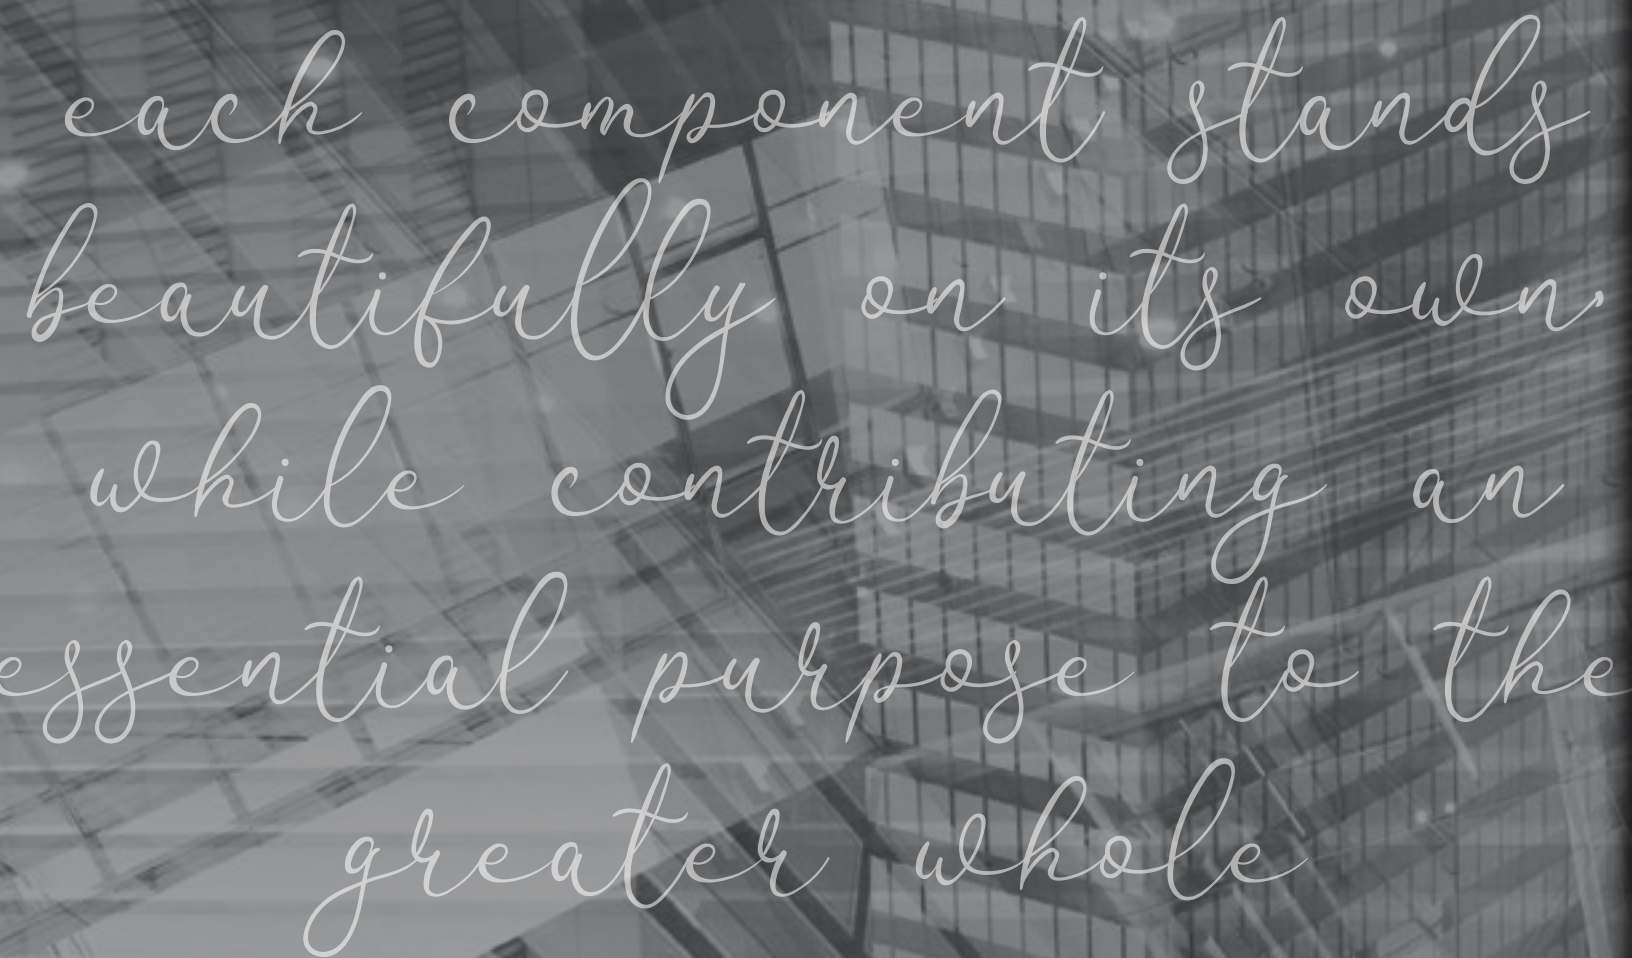 each component stands
beautifully on its own,
while contributing an
essential purpose to the
greater whole